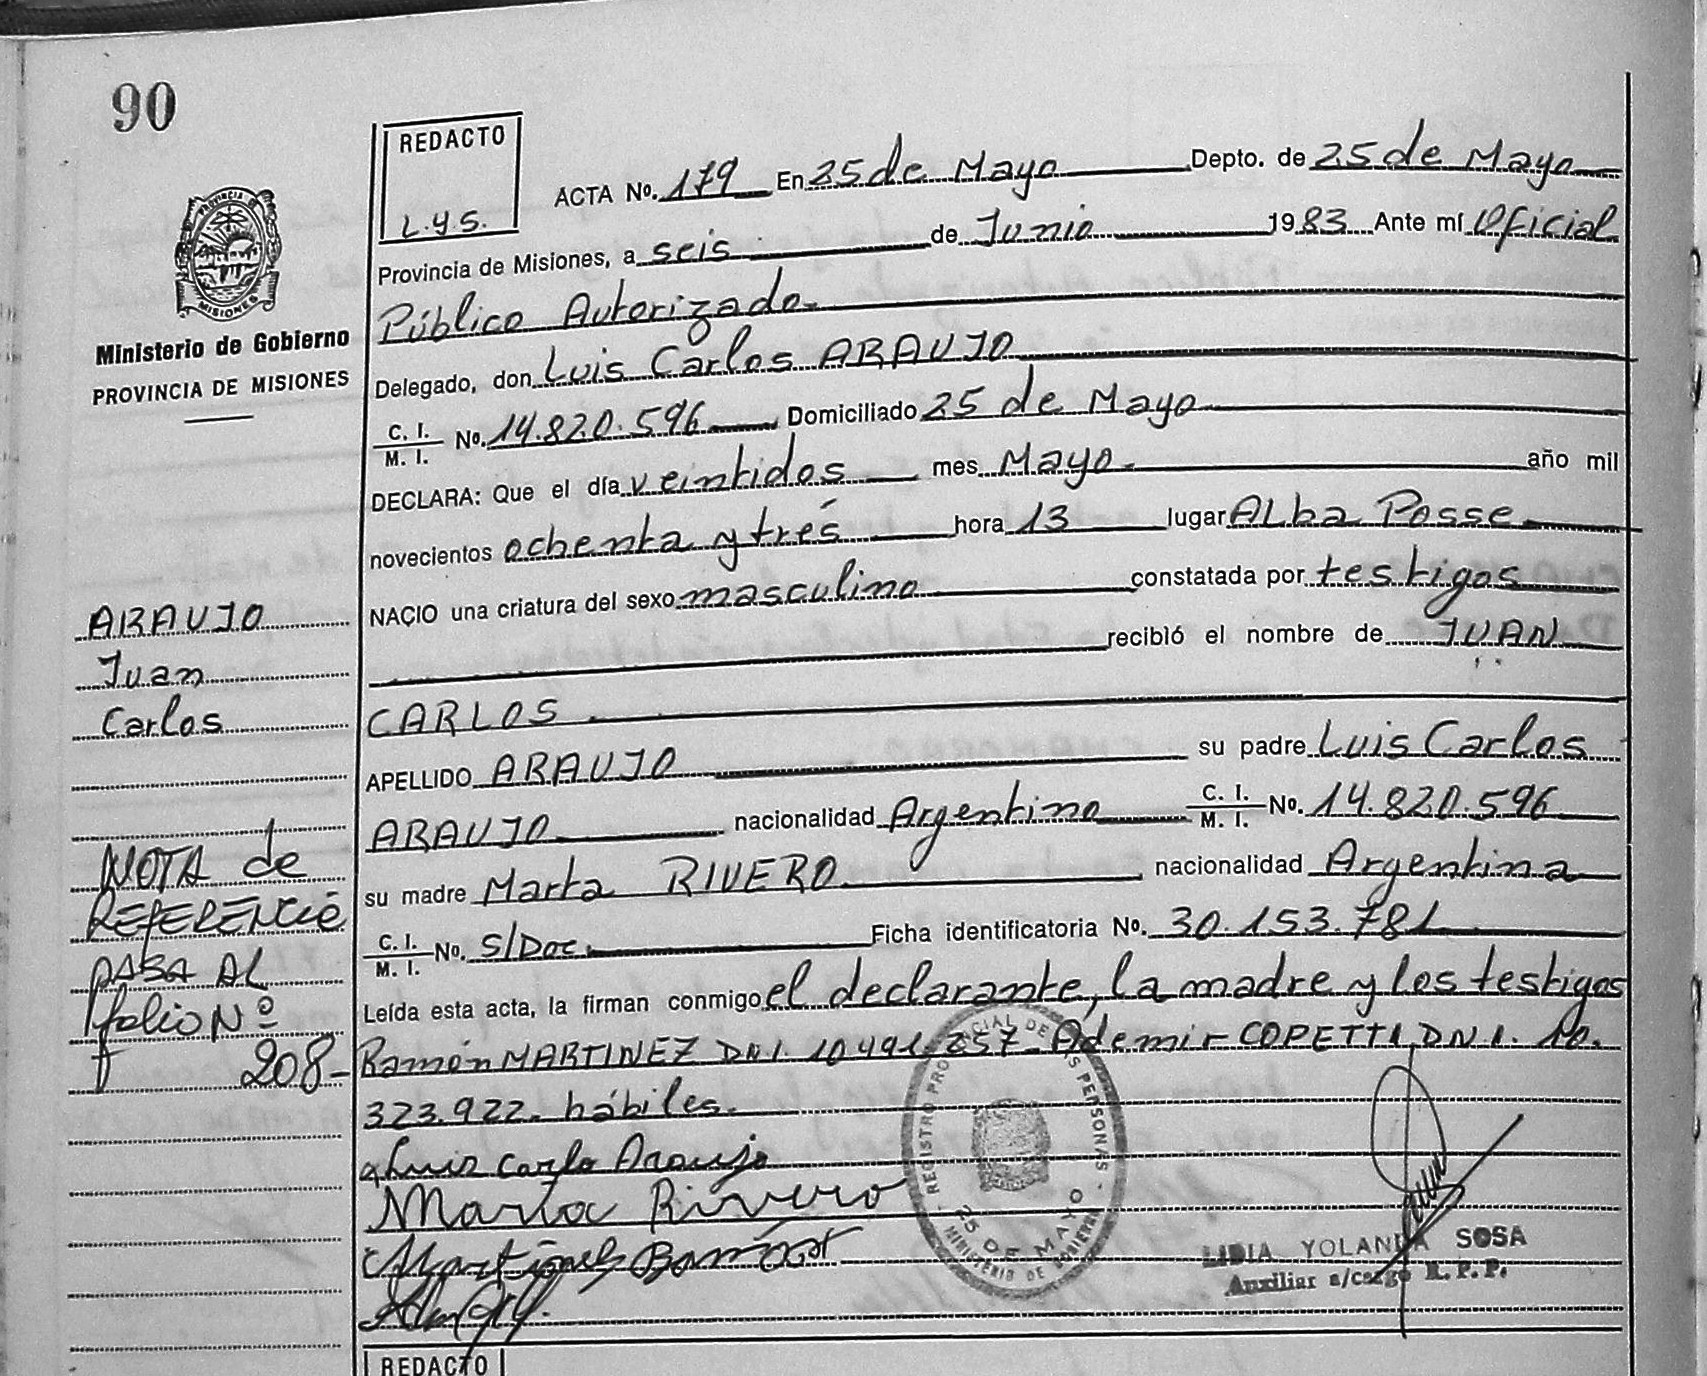 90
REDACTO
L.Y.S.
ACTA No. 179 En 25 de Mayo Depto. de 25 de Mayo
Provincia de Misiones, a seis de Junio 1983 Ante mí Oficial
Público Autorizado.
Delegado, don Luis Carlos ARAUJO
C. I. / M. I. No. 14.820.596 Domiciliado 25 de Mayo
DECLARA: Que el día veintidos mes Mayo. año mil
novecientos ochenta y trés hora 13 lugar Alba Posse
NACIO una criatura del sexo masculino constatada por testigos
recibió el nombre de JUAN
CARLOS
APELLIDO ARAUJO su padre Luis Carlos
ARAUJO nacionalidad Argentino C. I. / M. I. No. 14.820.596
su madre Marta RIVERO nacionalidad Argentina
C. I. / M. I. No. S/Doc. Ficha identificatoria No. 30.153.781
Leída esta acta, la firman conmigo el declarante, la madre y los testigos
Ramón MARTINEZ DNI. 10.491.257. Ademir COPETTI, DNI. 10.
323.922. hábiles.
Luis Carlo Araujo
Marta Rivero
PROVINCIA DE
MISIONES
Ministerio de Gobierno
PROVINCIA DE MISIONES
ARAUJO
Juan
Carlos
NOTA de
REFERENCIÉ
PASA AL
folio Nº
208-
REGISTRO PROVINCIAL DE LAS PERSONAS
25 DE MAYO
MINISTERIO DE GOBIERNO
LIDIA YOLANDA SOSA
Auxiliar a/cargo R.P.P.
REDACTO